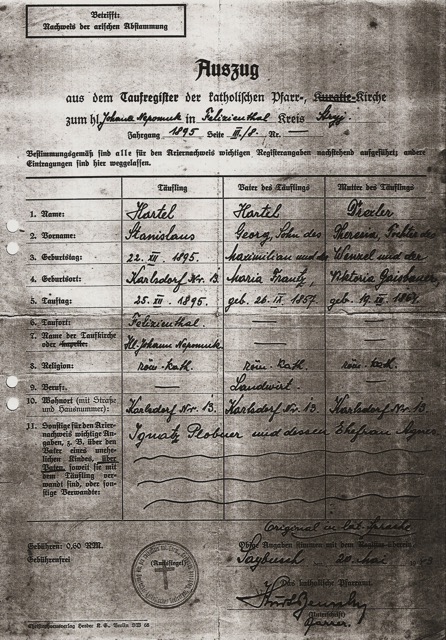 Betrifft:
Nachweis der arischen Abstammung
Auszug
aus dem Taufregister der katholischen Pfarr-, Kuratie-Kirche
zum hl. Johann Nepomuk in Felizienthal Kreis Stryj.
Jahrgang 1895 Seite III/8. Nr. —
Bestimmungsgemäß sind alle für den Ariernachweis wichtigen Registerangaben nachstehend aufgeführt; andere
Eintragungen sind hier weggelassen.
Täufling Vater des Täuflings Mutter des Täuflings
1. Name: Hartel Hartel Drexler
2. Vorname: Stanislaus Georg, Sohn des Theresia, Tochter des
3. Geburtstag: 22. XII. 1895. Maximilian und der Wenzel und der
4. Geburtsort: Karlsdorf Nr. 13. Maria Frantz, Viktoria Gaisbauer,
5. Tauftag: 25. XII. 1895. geb. 26. IX. 1857. geb. 19. 1864.
6. Taufort: Felizienthal. — —
7. Name der Taufkirche
oder Kapelle: Hl. Johann Nepomuk — —
8. Religion: röm.-kath. röm.-kath. röm.-kath.
9. Beruf: — Landwirt. —
10. Wohnort (mit Straße
und Hausnummer): Karlsdorf Nr. 13. Karlsdorf Nr. 13. Karlsdorf Nr. 13.
11. Sonstige für den Arier-
nachweis wichtige An-
gaben, z. B. über den
Vater eines unehe-
lichen Kindes, über
Paten, soweit sie mit
dem Täufling ver-
wandt sind, oder son-
stige Verwandte:
Ignatz Plobner und dessen Ehefrau Agnes
Original in lat. Sprache
Gebühren: 0,60 RM.
Gebührenfrei
(Amtssiegel)
Obige Angaben stimmen mit dem
Saybusch 20. Mai
Das katholische Pfarramt.
(Unterschrift)
Pfarrer.
Herder K. G., Berlin NW 68